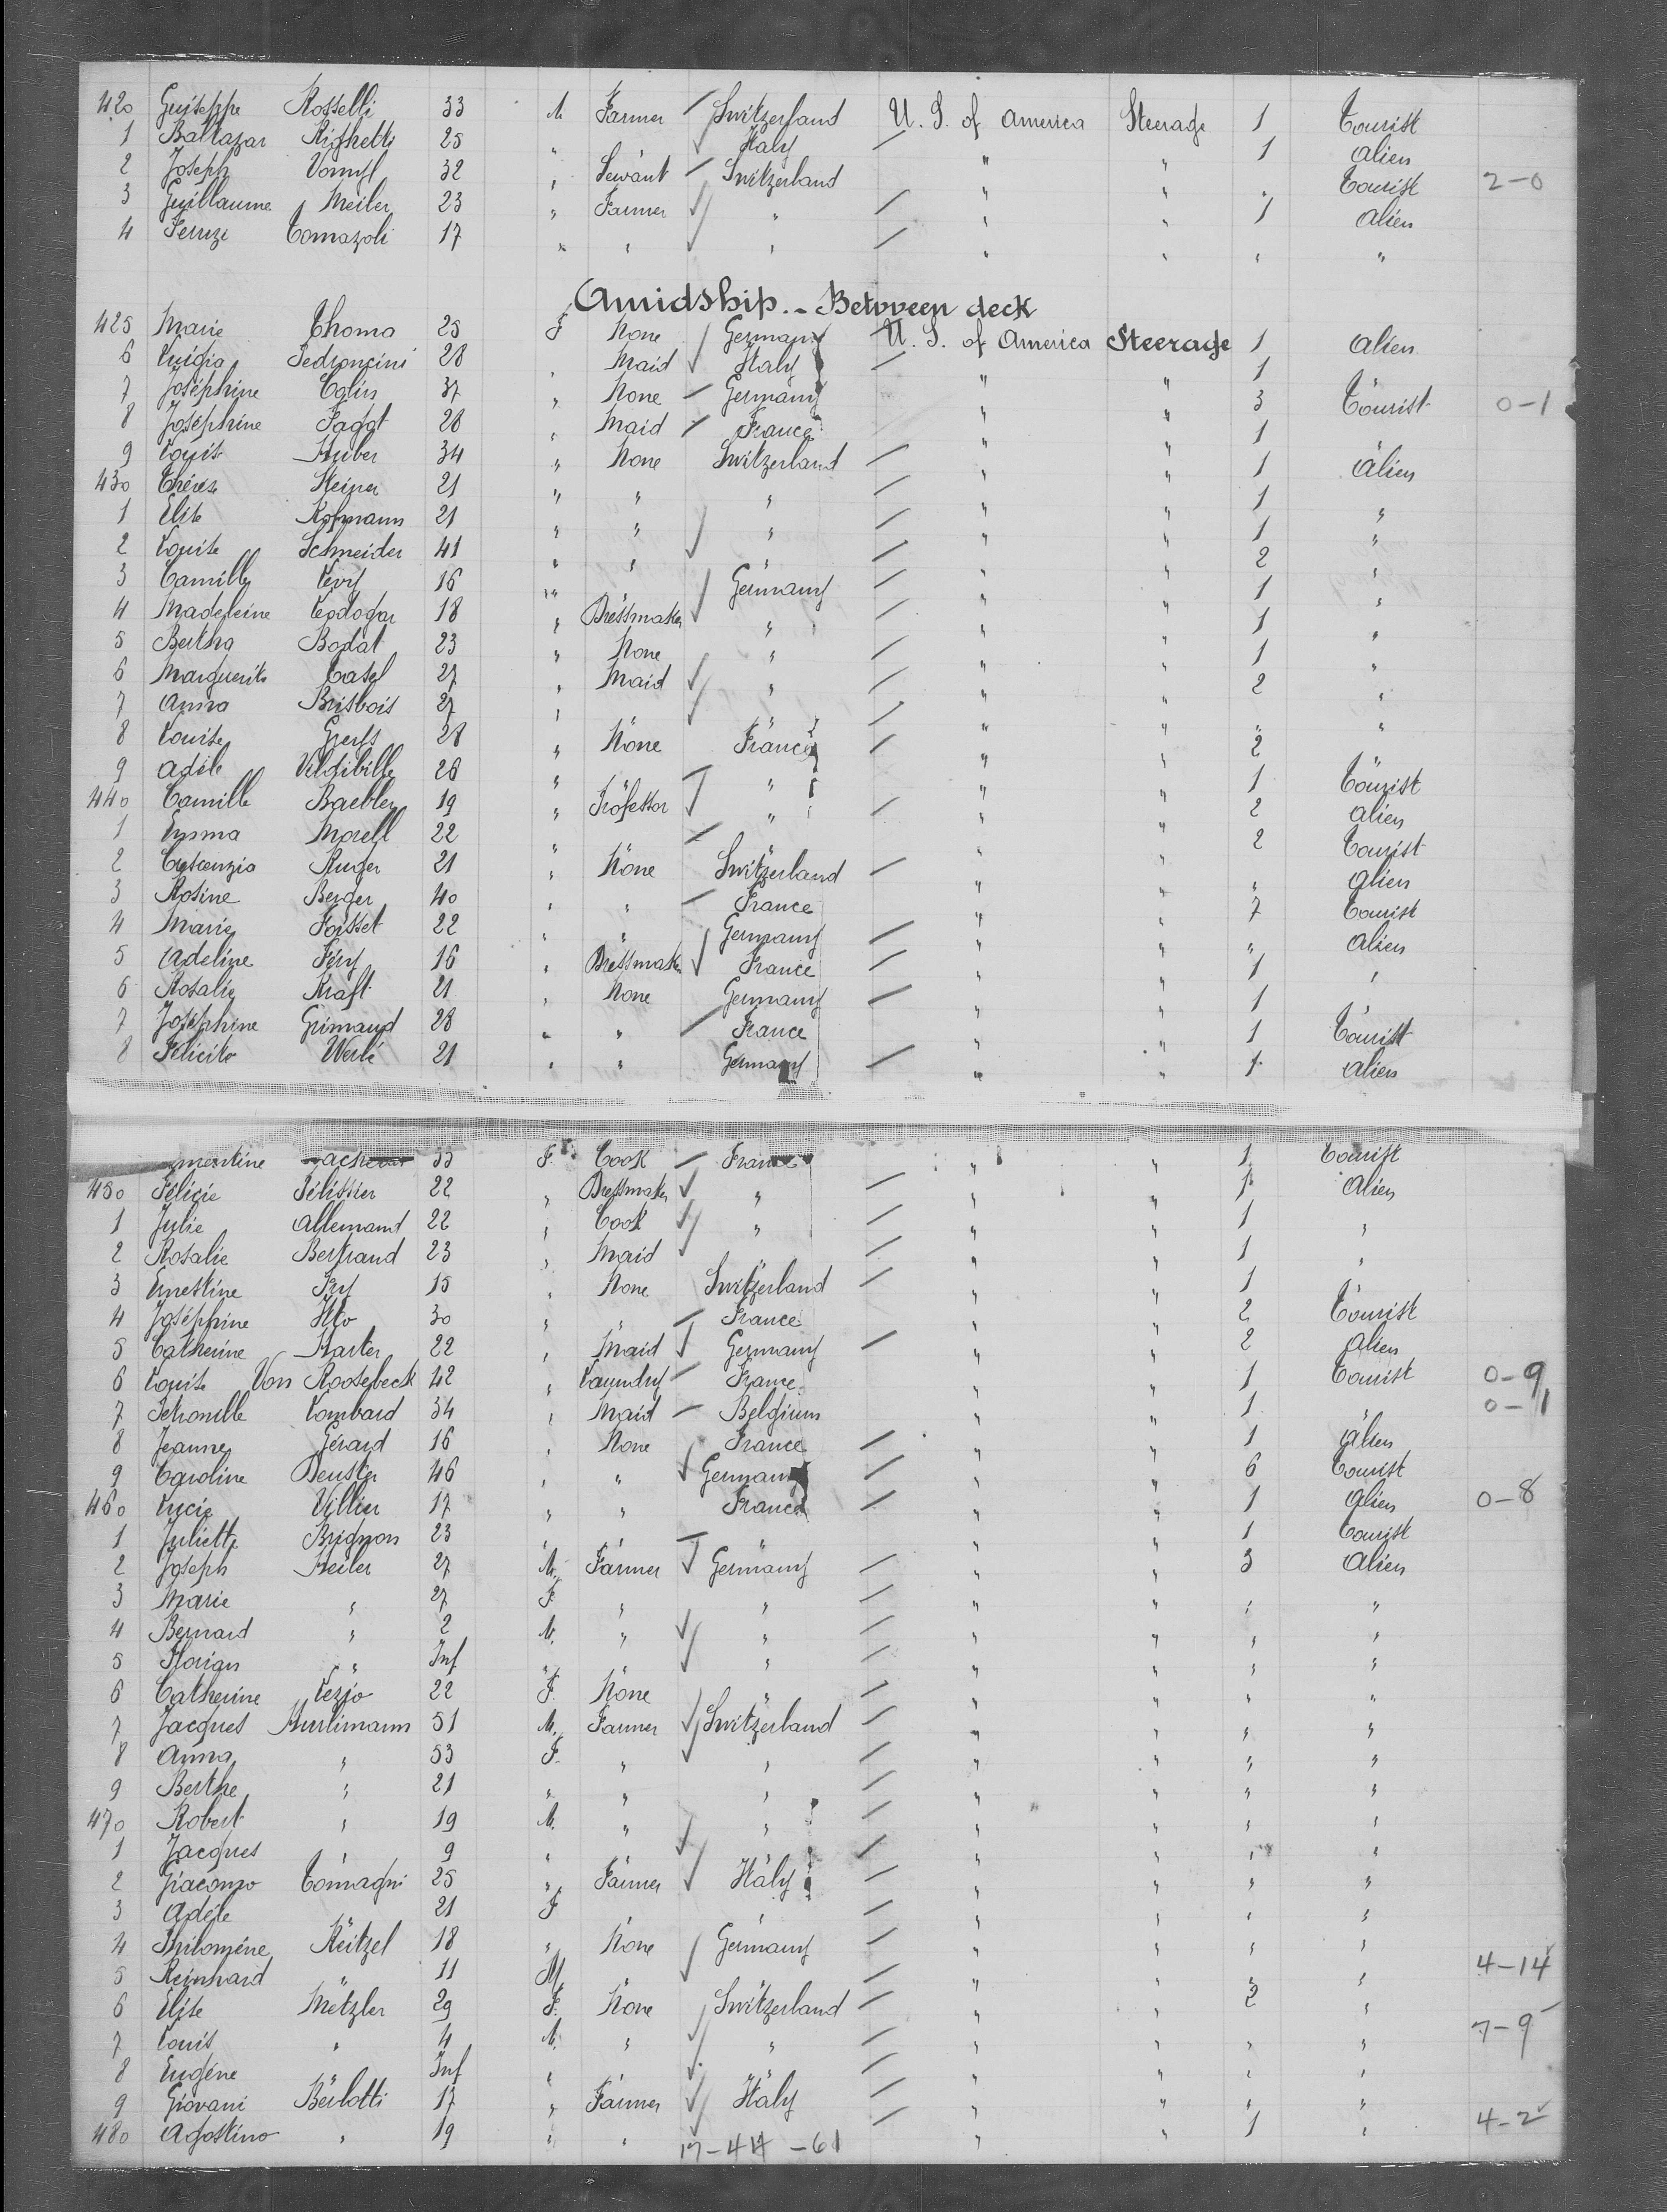 420 Guiseppe Rosselli 33 M Farmer Switzerland U. S. of America Steerage 1 Tourist
1 Baltazar Righetti 25 " Italy 1 alien
2 Joseph 32 " Servant Switzerland " " Tourist 2-0
3 Guillaume Meiler 23 " Farmer " " " 1 alien
4 Tomazoli 17 " " " " " " "
Amidship. - Between deck
425 Marie Thoma 25 F None Germany U. S. of America Steerage 1 alien
6 Luigia Pedroncini 28 " Maid Italy 1
7 Joséphine Colin 37 " None Germany " " 3 Tourist 0-1
8 Joséphine Fagot 28 " Maid France " " 1 "
9 Louis Huber 34 " None Switzerland " " 1 alien
430 Thérèse Steiner 21 " " " " " 1 "
1 Elise Kofmann 21 " " " " " 1 "
2 Louise Schneider 41 " " " " 2 "
3 Camille Levy 16 " Germany " " 1 "
4 Madeleine 18 " Dressmaker " " " 1 "
5 Bertha Bodat 23 " None " " " 1 "
6 Marguerite Casel 27 " Maid " " " 2 "
7 Anna Brisbois 27 " " " " "
8 Louise 28 " None France " " 2 "
9 Adèle 26 " " " " 1 Tourist
440 Camille Baebler 19 " Professor " " " 2 alien
1 Emma Morell 22 " " " 2 Tourist
2 Crescenzia Ruger 21 " None Switzerland " " " alien
3 Rosine Berger 40 " " France " " 7 Tourist
4 Marie Foisset 22 " " Germany " " " alien
5 Adeline Fery 16 " Dressmaker France " " 1 "
6 Rosalie Kraft 21 " None Germany " " 1 "
7 Joséphine Grimaud 28 " " France " " 1 Tourist
8 Félicité Werlé 21 " " Germany " " 1 alien
mentine 33 F. Cook France " " 1 Tourist
450 Félicie Pélissier 22 " Dressmaker " " " 1 Alien
1 Julie Allemand 22 " Cook " " " 1 "
2 Rosalie Bertrand 23 " Maid " " 1 "
3 Ernestine Fry 15 " None Switzerland " " 1 "
4 Joséphine 30 " " France " " 2 Tourist
5 Catherine Harter 22 " Maid Germany " " 2 alien
6 Louise Von Roosebeck 42 " Laundry France " " 1 Tourist 0-9
7 Petronille Lombard 34 " Maid Belgium " " 1 " 0-1
8 Jeanne Gérard 16 " None France " " 1 alien
9 Caroline Deuster 46 " " Germany " " 6 Tourist
460 Lucie Villier 17 " " France " " 1 alien 0-8
1 Juliette Brignon 23 " " " " " 1 Tourist
2 Joseph Heiler 27 M. Farmer Germany " " 3 alien
3 Marie " 27 F. " " " " " "
4 Bernard " 2 M. " " " " " "
5 Florian " Inf " " " " " "
6 Catherine Vezio 22 F. None " " " " "
7 Jacques Hurlimann 51 M. Farmer Switzerland " " " "
8 Anna " 53 F. " " " " " "
9 Berthe " 21 " " " " " " "
470 Robert " 19 M. " " " " " "
1 Jacques " 9 " " " " "
2 Giacomo Tomagni 25 " Farmer Italy " " " "
3 Adèle 21 F " " " " " "
4 Philomène Heitzel 18 " None Germany " " " "
5 Reinhard " 11 M. " " " " 4-14
6 Elise Metzler 29 F. None Switzerland " " 2 "
7 Louis " 4 M. " " " " " " 7-9
8 Eugène Inf " " " " "
9 Giovani Berlotti 17 " Farmer Italy " " " "
480 Agostino " 19 " " " " 1 " 4-2
17-44 -61